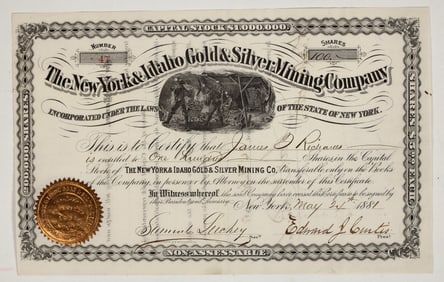 CAPITAL STOCK $1,000,000.
NUMBER
47
SHARES
100
The New York & Idaho Gold & Silver Mining Company
INCORPORATED UNDER THE LAWS
OF THE STATE OF NEW YORK.
This is to Certify that James
is entitled to One Hundred Shares in the Capital
Stock of THE NEW YORK & IDAHO GOLD & SILVER MINING CO. transferable only on the Books
of the Company, in person or by Attorney on the surrender of this Certificate
In Witness whereof the said Company have caused this Certificate to be signed by
their President and Secretary
New York, May 24th 1881
Samuel Edward J. Curtis
Secy. Prest.
NON-ASSESSABLE.